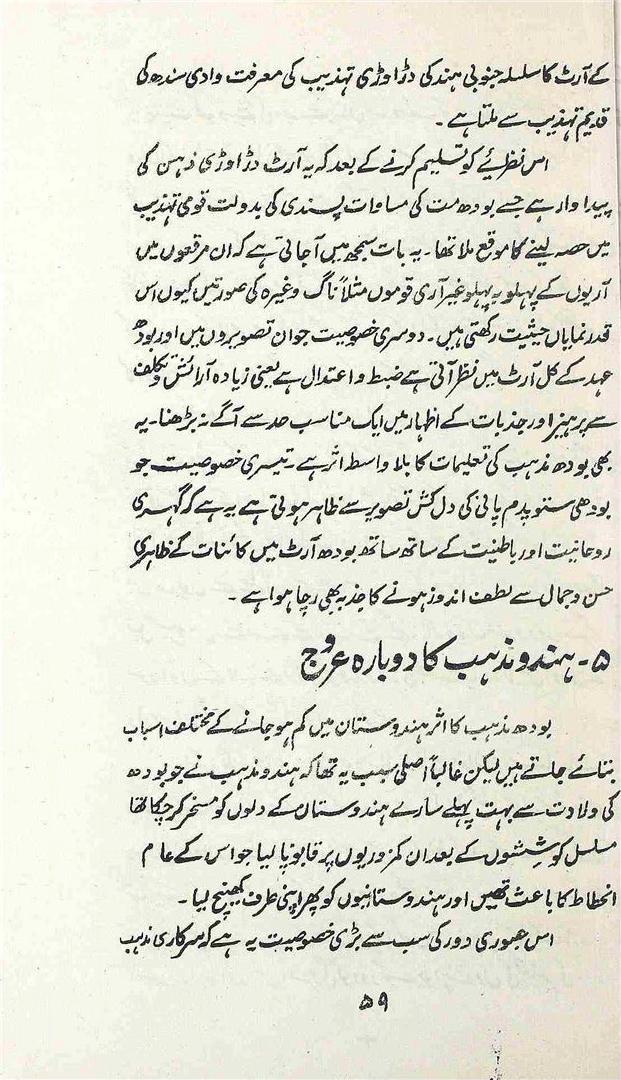 کے آرٹ کا سلسلہ جنوبی ہند کی دڑاوڑی تہذیب کی معرفت وادی سندھ کی
قدیم تہذیب سے ملتا ہے ۔
اس نظریئے کو تسلیم کرنے کے بعد کہ یہ آرٹ دڑاوڑی ذہن کی
پیداوار ہے جسے بودھ مت کی مساوات پسندی کی بدولت قومی تہذیب
میں حصہ لینے کا موقع ملا تھا ۔ یہ بات سمجھ میں آجاتی ہے کہ ان مرقعوں میں
آریوں کے پہلو بہ پہلو غیر آری قوموں مثلاً ناگ وغیرہ کی صورتیں کیوں اس
قدر نمایاں حیثیت رکھتی ہیں ۔ دوسری خصوصیت جو ان تصویروں میں اور بودھ
عہد کے کل آرٹ میں نظر آتی ہے ضبط و اعتدال ہے یعنی زیادہ آرائش و تکلف
سے پرہیز اور جذبات کے اظہار میں ایک مناسب حد سے آگے نہ بڑھنا ۔ یہ
بھی بودھ مذہب کی تعلیمات کا بلاواسطہ اثر ہے ۔ تیسری خصوصیت جو
بودھی ستو پدم پانی کی دل کش تصویر سے ظاہر ہوتی ہے یہ ہے کہ گہری
روحانیت اور باطنیت کے ساتھ ساتھ بودھ آرٹ میں کائنات کے ظاہری
حسن و جمال سے لطف اندوز ہونے کا جذبہ بھی رچا ہوا ہے ۔
۵ ۔ ہندو مذہب کا دوبارہ عروج
بودھ مذہب کا اثر ہندوستان میں کم ہو جانے کے مختلف اسباب
بتائے جاتے ہیں لیکن غالباً اصلی سبب یہ تھا کہ ہندو مذہب نے جو بودھ
کی ولادت سے بہت پہلے سارے ہندوستان کے دلوں کو مسخر کر چکا تھا
مسلسل کوششوں کے بعد ان کمزوریوں پر قابو پا لیا جو اس کے عام
انحطاط کا باعث تھیں اور ہندوستانیوں کو پھر اپنی طرف کھینچ لیا ۔
اس عبوری دور کی سب سے بڑی خصوصیت یہ ہے کہ سرکاری مذہب
۵۹